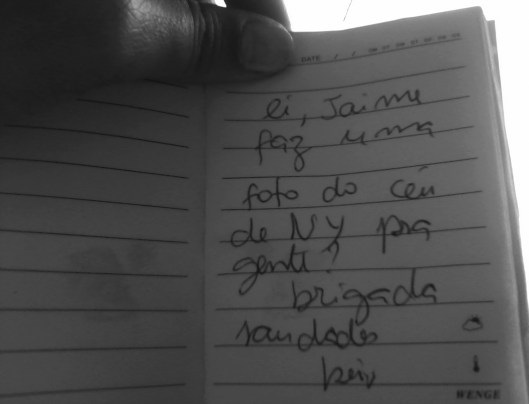 DATE / /
ei, Jaime
faz uma
foto do céu
de NY pra
gente?
brigada
saudades
WENGE